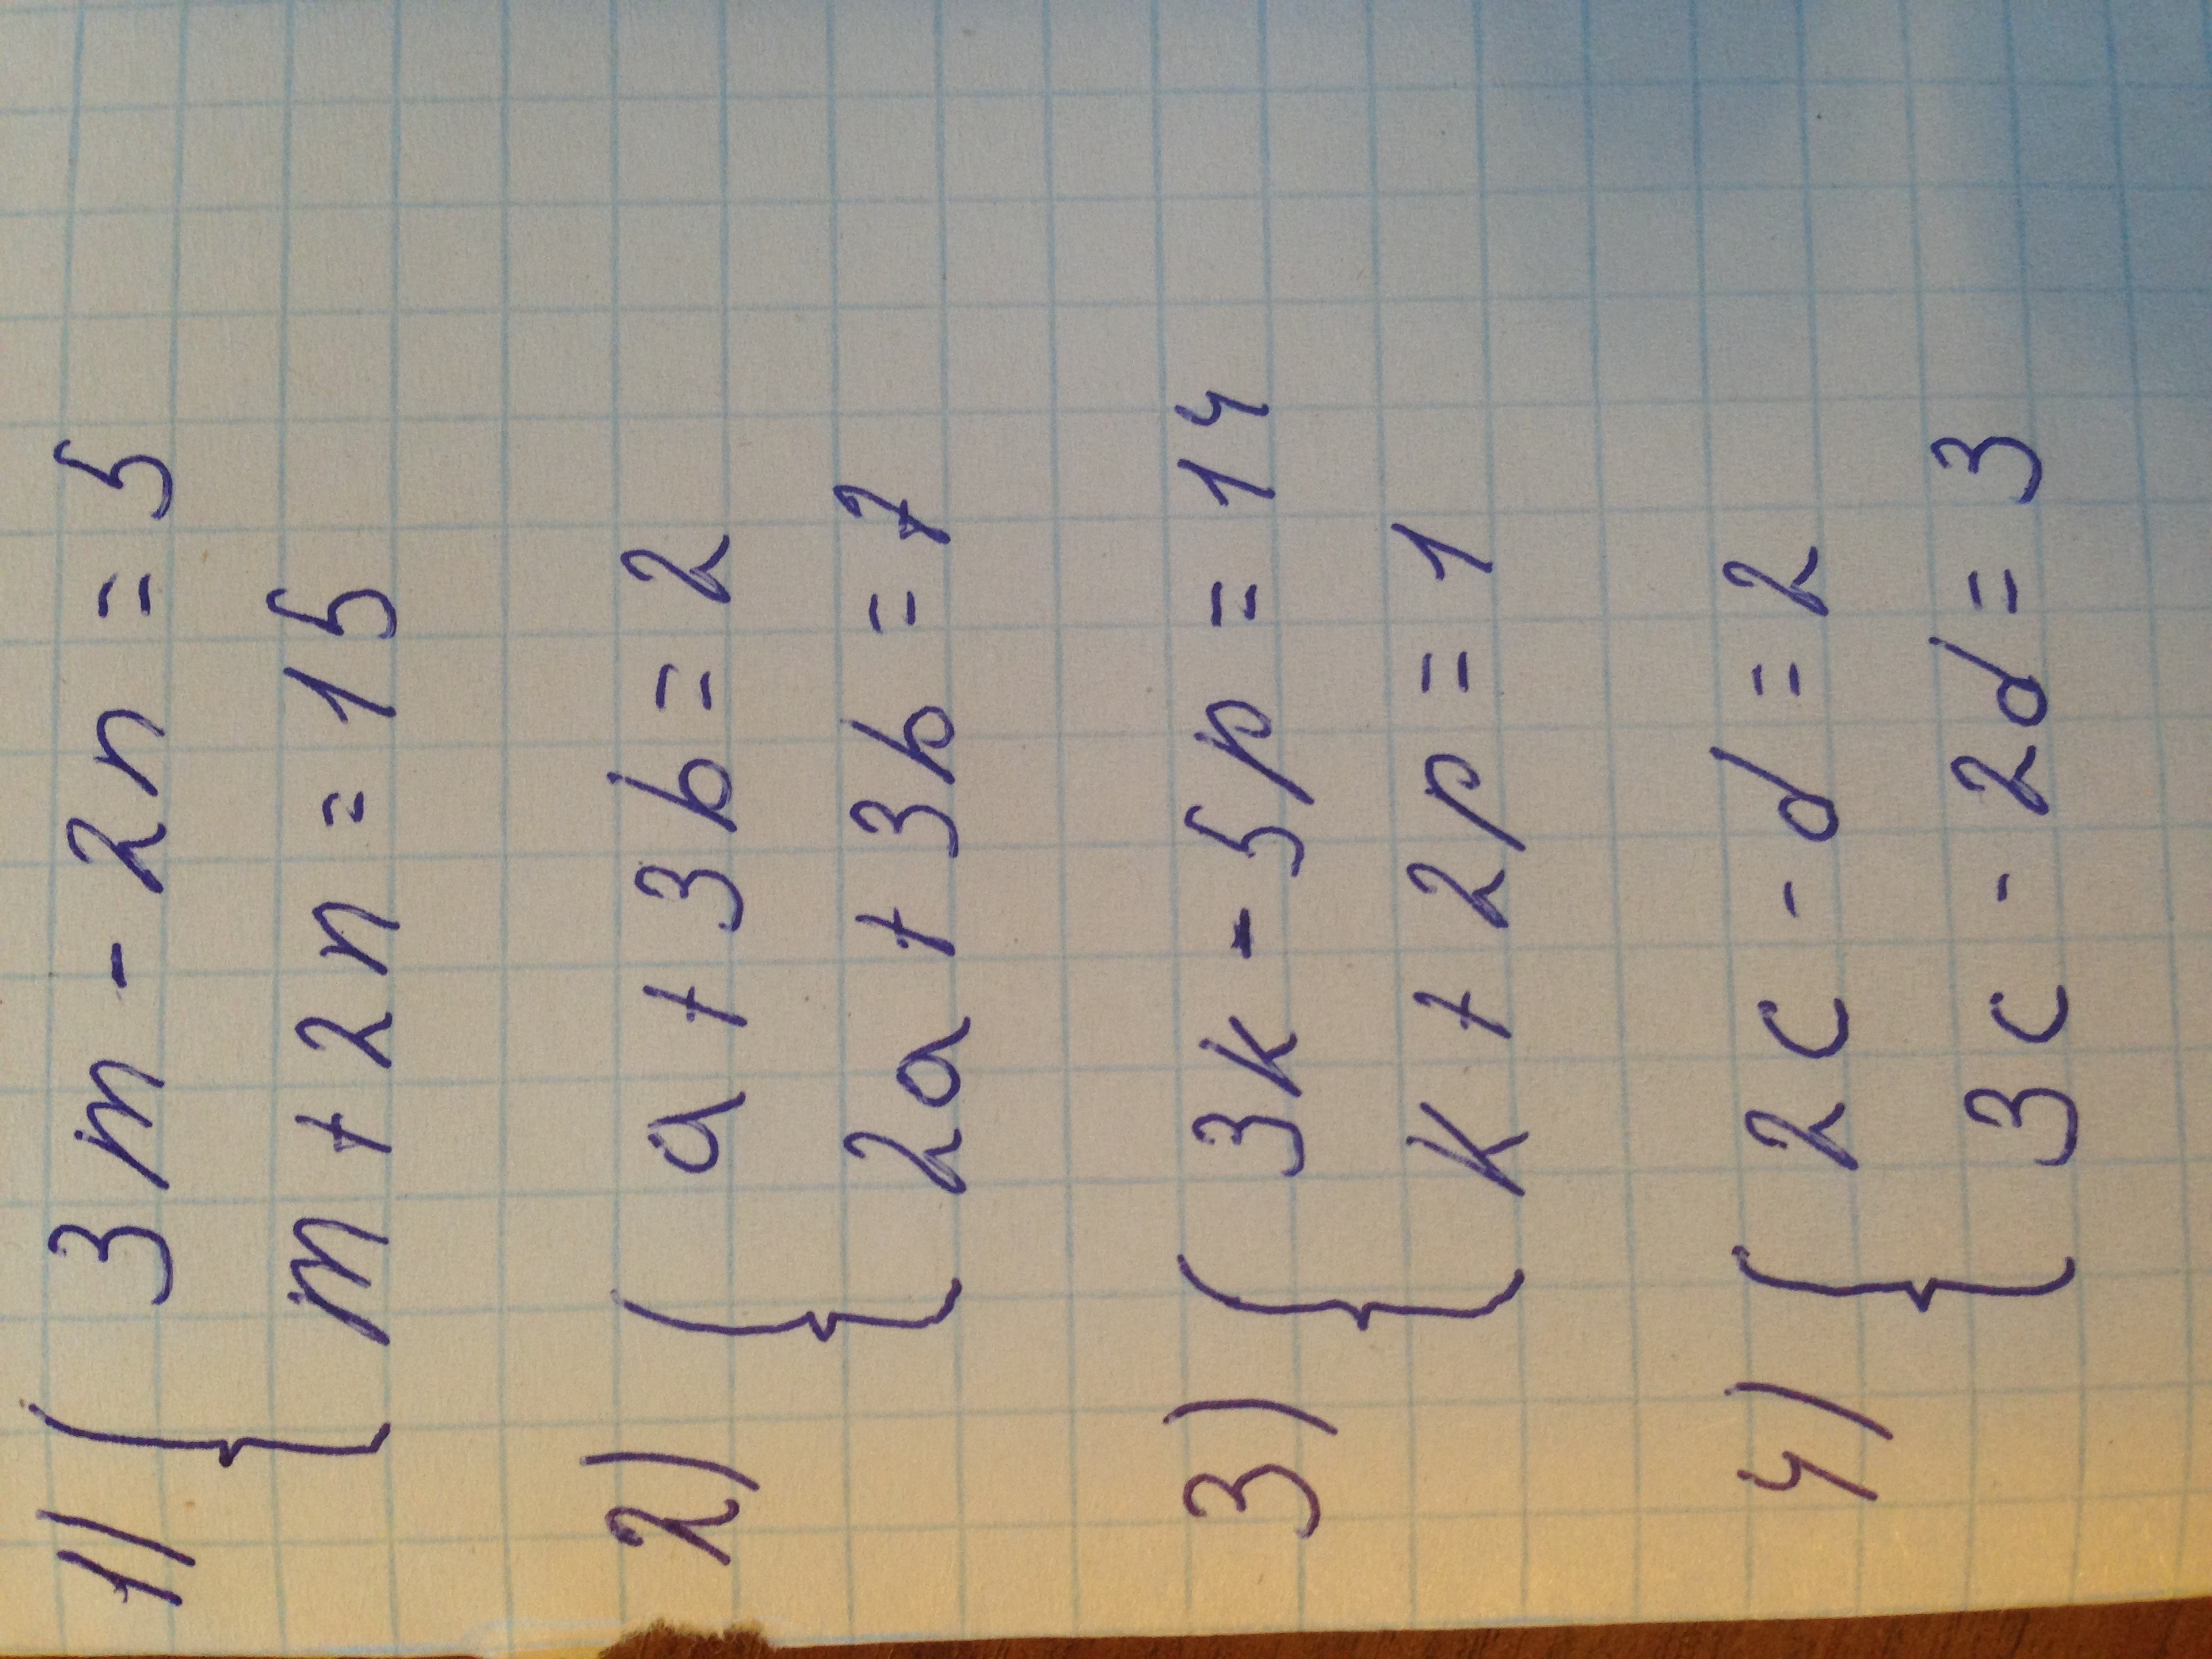 1) { 3m - 2n = 5
m + 2n = 15
2) { a + 3b = 2
2a + 3b = 7
3) { 3k - 5p = 14
k + 2p = 1
4) { 2c - d = 2
3c - 2d = 3